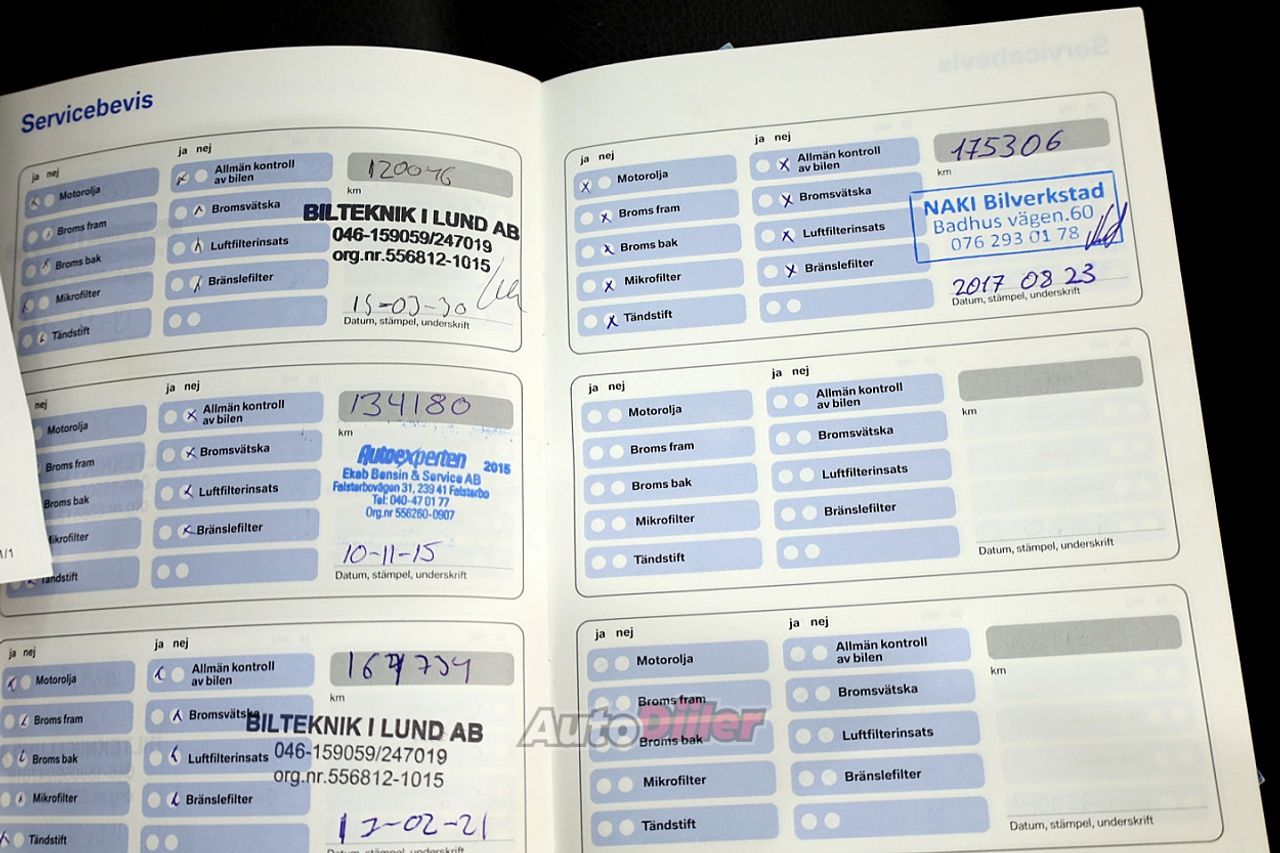 Servicebevis
ja nej
Motorolja
Broms fram
Broms bak
Mikrofilter
Tändstift
ja nej
Allmän kontroll
av bilen
Bromsvätska
Luftfilterinsats
Bränslefilter
120046
km
BILTEKNIK I LUND AB
046-159059/247019
org.nr.556812-1015
15-03-30
Datum, stämpel, underskrift
nej
Motorolja
Broms fram
Broms bak
Mikrofilter
Tändstift
ja nej
Allmän kontroll
av bilen
Bromsvätska
Luftfilterinsats
Bränslefilter
134180
km
Autoexperten 2015
Ekab Bensin & Service AB
Falsterbovägen 31, 239 41 Falsterbo
Tel: 040-47 01 77
Org.nr 556260-0907
10-11-15
Datum, stämpel, underskrift
1/1
ja nej
Motorolja
Broms fram
Broms bak
Mikrofilter
Tändstift
ja nej
Allmän kontroll
av bilen
Bromsvätska
Luftfilterinsats
Bränslefilter
km
BILTEKNIK I LUND AB
046-159059/247019
org.nr.556812-1015
Datum, stämpel, underskrift
ja nej
Motorolja
Broms fram
Broms bak
Mikrofilter
Tändstift
ja nej
Allmän kontroll
av bilen
Bromsvätska
Luftfilterinsats
Bränslefilter
175306
km
NAKI Bilverkstad
Badhus vägen.60
076 293 01 78
2017 08 23
Datum, stämpel, underskrift
ja nej
Motorolja
Broms fram
Broms bak
Mikrofilter
Tändstift
ja nej
Allmän kontroll
av bilen
Bromsvätska
Luftfilterinsats
Bränslefilter
km
Datum, stämpel, underskrift
ja nej
Motorolja
Broms fram
Broms bak
Mikrofilter
Tändstift
ja nej
Allmän kontroll
av bilen
Bromsvätska
Luftfilterinsats
Bränslefilter
km
Datum, stämpel, underskrift
AutoDiler